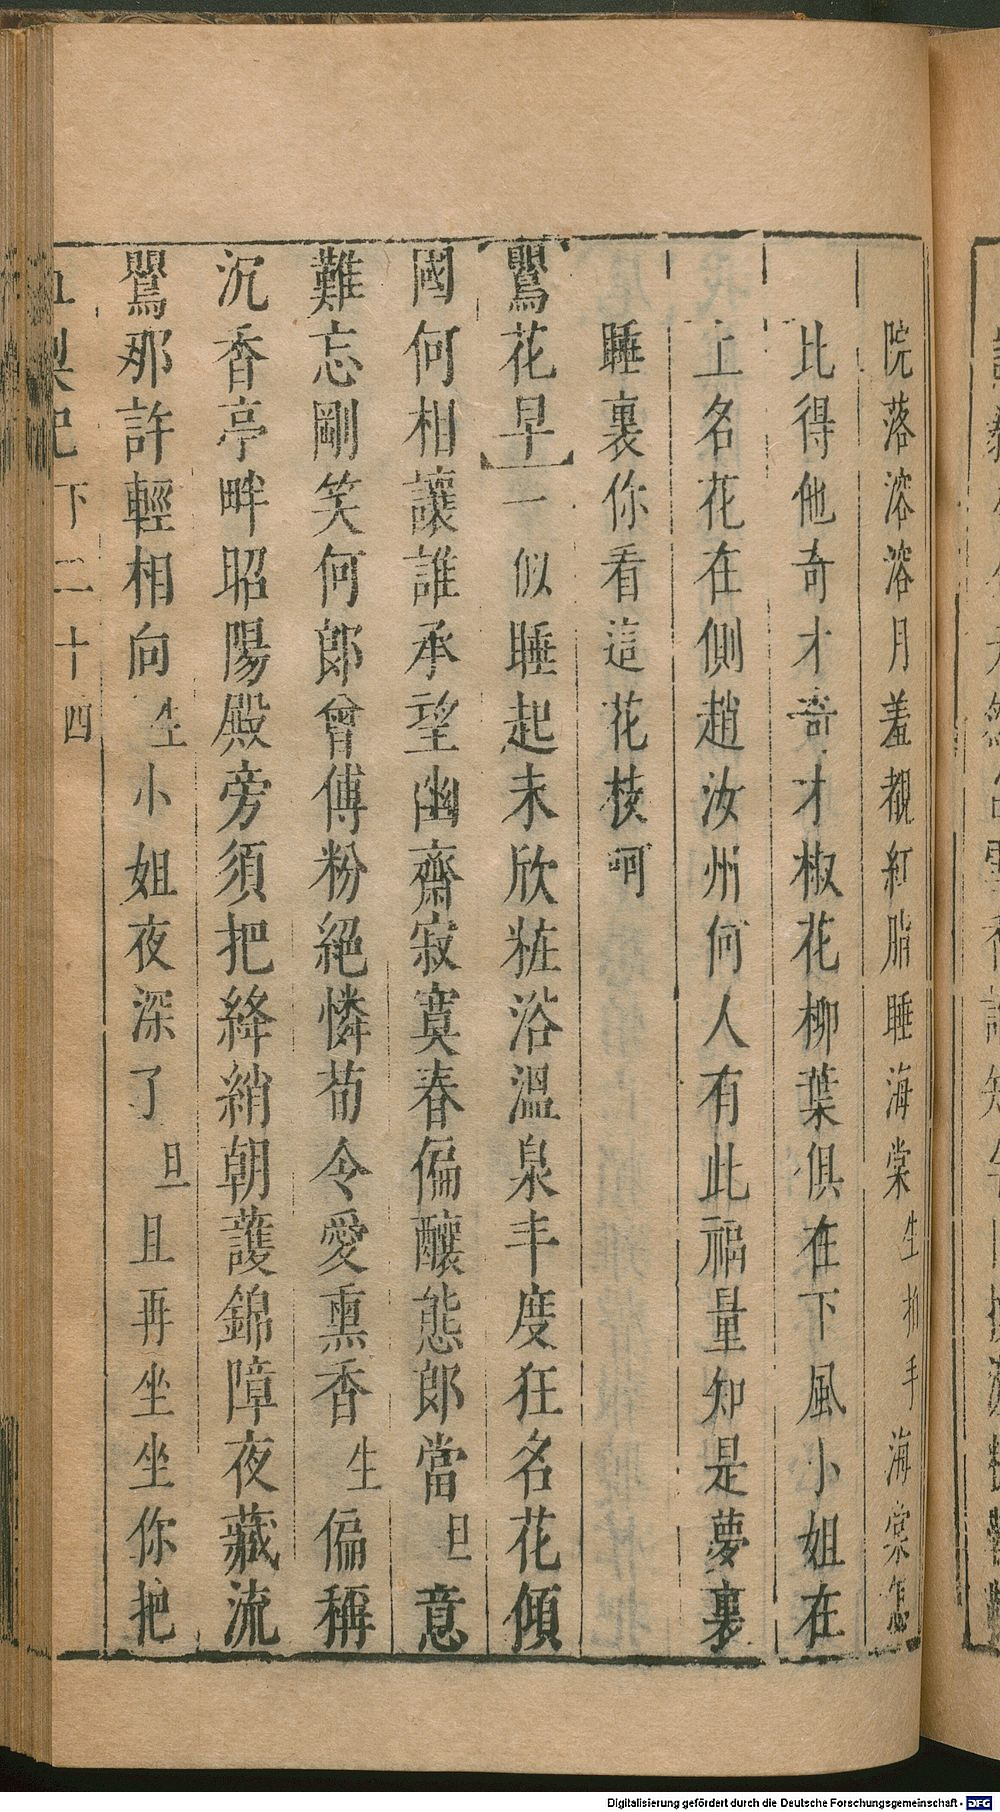 院落溶溶月羞覩紅脂睡海棠生拍手海棠怎
比得他奇才奇才椒花柳葉俱在下風小姐在
上名花在側趙汝州何人有此福量知是夢裏
睡裏你看這花枝呵
鶯花早一似睡起未欣粧浴溫泉丰度狂名花傾
國何相讓誰承望幽齋寂寞春偏釀態郎當旦意
難忘剛笑何郎曾傅粉絕憐荀令愛熏香生偏稱
沉香亭畔昭陽殿旁須把絳綃朝護錦障夜藏流
鶯那許輕相向生小姐夜深了旦且再坐坐你把
梨記 下二十四
Digitalisierung gefördert durch die Deutsche Forschungsgemeinschaft - DFG